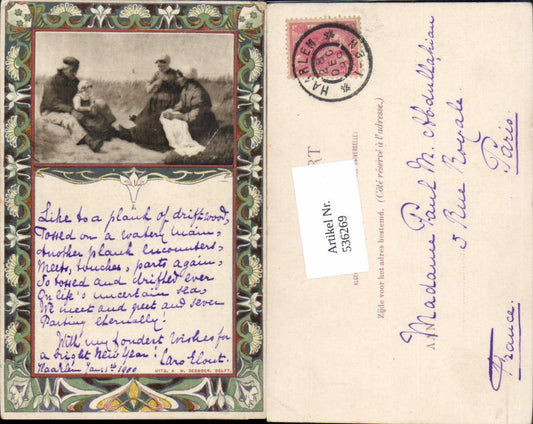 Like to a plank of driftwood,
Tossed on a watery main,
Another plank encounters,
Meets, touches, parts again;
So tossed and drifted ever
On life's uncertain sea,
We meet and greet and sever
Parting eternally!
With my fondest wishes for
a bright New Year!
Caro Elout.
Haarlem Jan 1st 1900
UITG. A. DELFT.
HAARLEM
DEC
Artikel Nr.
536269
Zijde voor het adres bestemd. (Côté réservé à l'adresse.)
Madame Paul M. Abdullahian
5 Rue Royale.
Paris.
France.